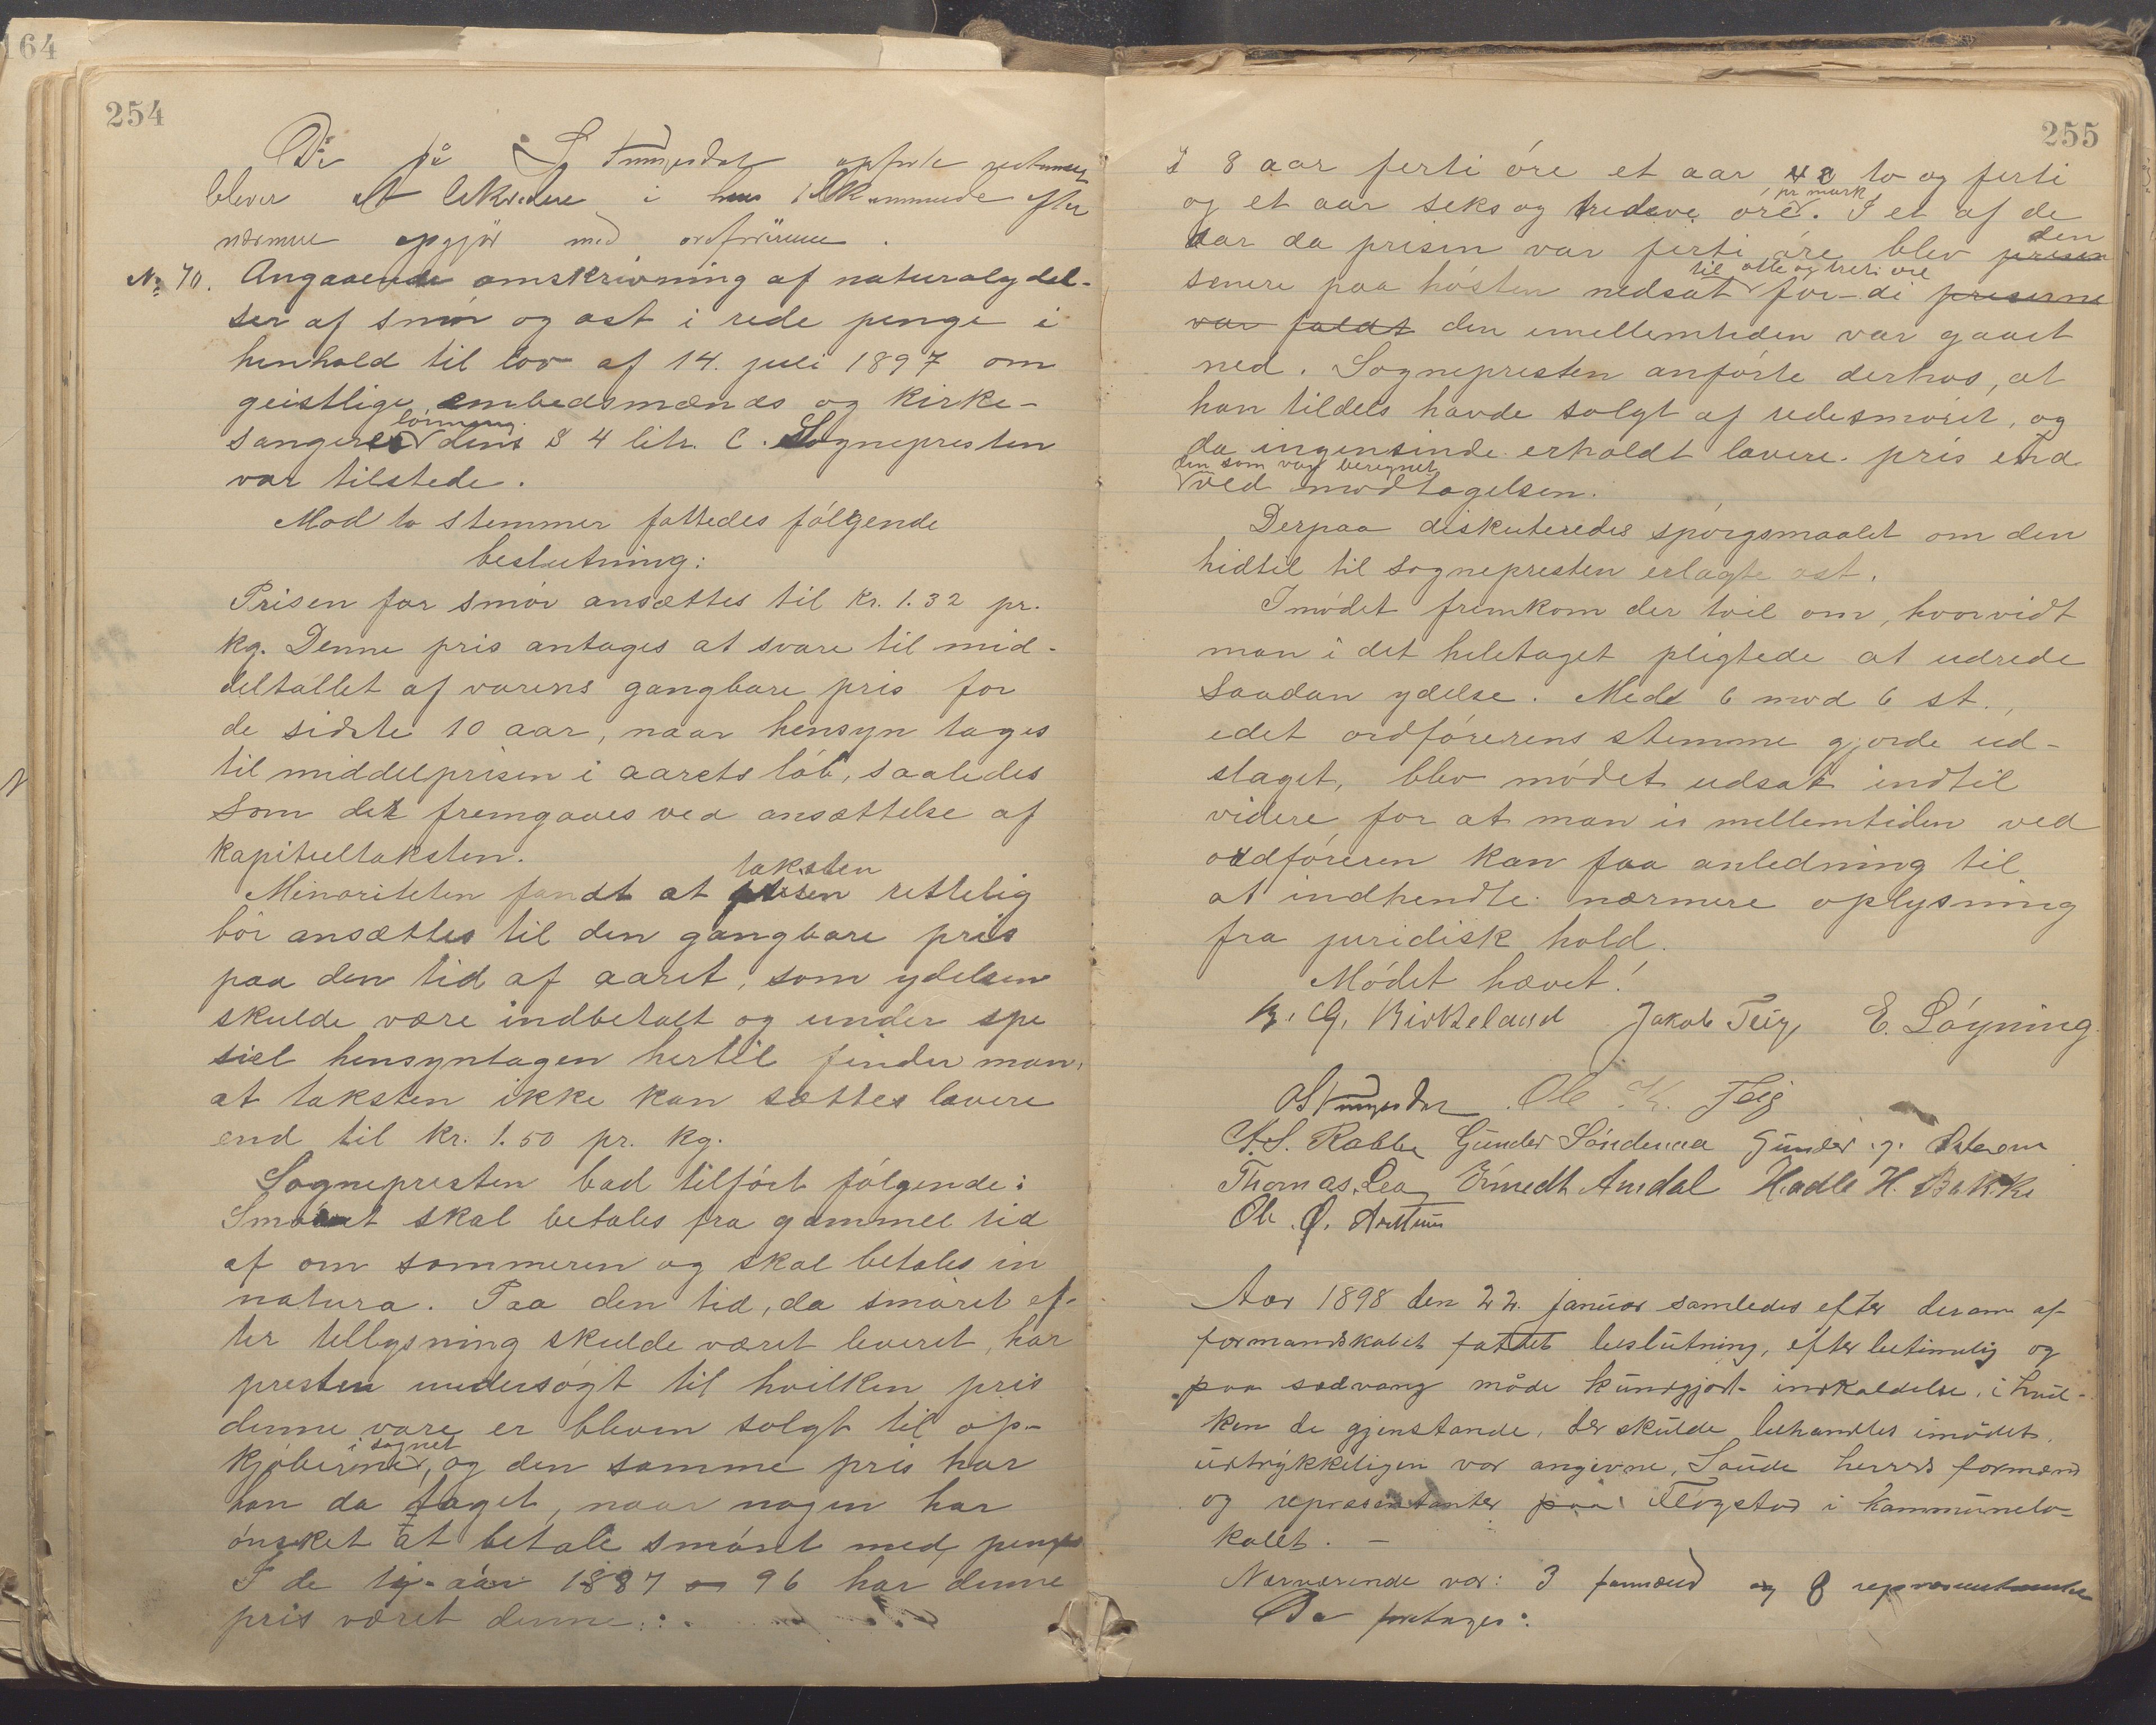 164
254
De på S Tungesdal opførte
blever at likvidere i hans tilkommende efter
nærmere opgjör med ordföreren.
No 70. Angaaende omskrivning af naturalydel-
ser af smör og ost i rede penge i
henhold til lov af 14. juli 1897 om
geistlige embedsmænds og kirke-
lönning
sangeres dens § 4 litr. C. Sognepresten
var tilstede.
Mod to stemmer fattedes fölgende
beslutning:
Prisen for smör ansættes til kr. 1.32 pr.
kg. Denne pris antages at svare til mid-
deltallet af varens gangbare pris for
de sidste 10 aar, naar hensyn tages
til middelprisen i aarets löb, saaledes
som det fremgaaes ved ansættelse af
kapiteltaksten.
taksten
Minoriteten fandt at prisen rettelig
bör ansættes til den gangbare pris
paa den tid af aaret, som ydelsen
skulde være indbetalt og under spe
siel hensyntagen hertil finder man,
at taksten ikke kan sættes lavere
end til kr. 1.50 pr. kg.
Sognepresten bad tilfört fölgende:
Smöret skal betales fra gammel tid
af om sommeren og skal betales in
natura. Paa den tid, da smöret ef-
ter tillysning skulde været leveret, har
presten undersögt til hvilken pris
denne vare er bleven solgt til op-
i sognet
kjöberne, og den samme pris har
han da taget, naar nogen har
önsket at betale smöret med penge
I de ti aar 1887 – 96 har denne
pris været denne:
255
I 8 aar ferti öre et aar 42 to og ferti
pr mark
og et aar seks og tredeve öre. I et af de
aar da prisen var ferti öre blev prisen
den
til otte og treti öre
senere paa hösten nedsat for-di priserne
var faldt den imellemtiden var gaaet
ned. Sognepresten anförte derhos, at
han tildels havde solgt af redesmöret, og
da ingensinde erholdt lavere pris end
den som var beregnet
ved modtagelsen.
Derpaa diskuteredes spörgsmaalet om den
hidtil til sognepresten erlagte ost.
I mödet fremkom der tvil om, hvorvidt
man i det heletaget pligtede at udrede
saadan ydelse. Med 6 mod 6 st.,
idet ordförerens stemme gjorde ud-
slaget, blev mödet udsat indtil
videre for at man i mellemtiden ved
ordföreren kan faa anledning til
at indhendte nærmere oplysning
fra juridisk hold.
Mödet hævet!
B. G. Birkeland Jakob Teig E. Löyning
O S Tungesdal Ole K. Teig
A. S. Rabbe Gunder Söndenaa Gunder
Thomas Lea Amdal Hadle H. Bakke
Ole Ø. Artun
Aar 1898 den 22. januar samledes efter derom af
formandskabet fattet beslutning, efter betimelig og
paa sedvang måde kundgjort indkaldelse, i hvil-
ken de gjenstande, der skulde behandles i mödet,
udtrykkeligen var angivne, Saude herreds formænd
og repræsentanter paa Fløgstad i kommunelo-
kalet. –
Nærværende var: 3 formænd og 8 repræsentanter
Da foretages: